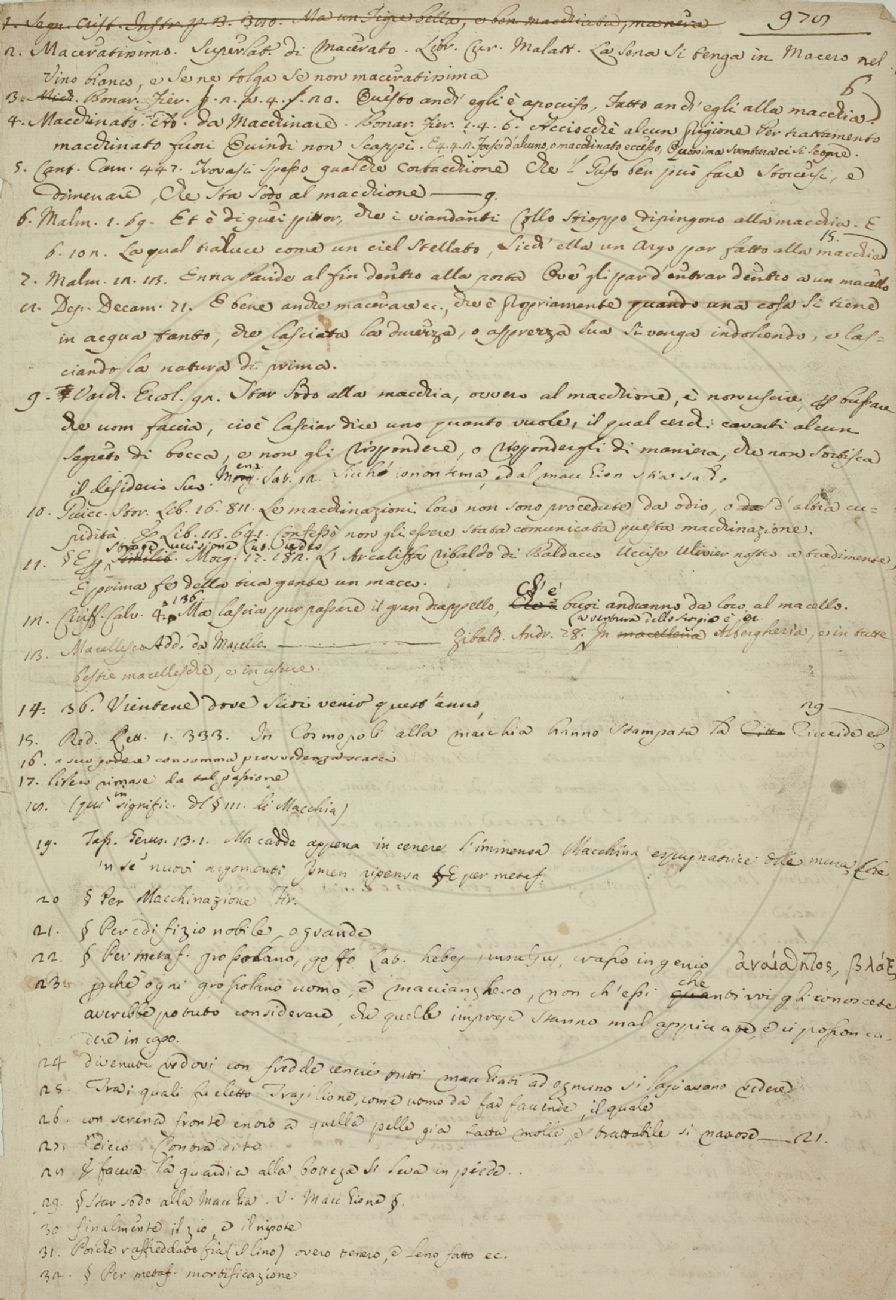 975
1. Segn. Crist. Instr. p. 3. 300. Ma un Tigre bella, e ben macchiata, maniera
2. Maceratissimo. Superlat. di Macerato. Libr. Cur. Malatt. La sena si tenga in Macero nel
vino bianco, e se ne tolga se non maceratissima
3. Bonar. Fier. p. n. 4. f. 20. Questo anch' egli è apocrifo, Fatto anch' egli alla macchia 6
4. Macchinato. Add. da Macchinare. Bonar. Fier. 1. 4. 6. Acciocchè alcun prigione Per trattamento
macchinato fuori Quindi non scappi.
5. Cant. Carn. 447. Trovasi spesso qualche corbacchione Che 'l Gufo ben può fare storcersi, e
dimenare, Che sta sodo al macchione — 9.
6. Malm. 1. 69. Et è di quei pittor, che i viandanti Collo stioppo dipingono alla macchia. E
6. 102. La qual traluce come un ciel stellato, Siedi ella un Argo par fatto alla macchia 15.
7. Malm. 12. 13. Entra Paride al fin dentro alla porta Ove gli par d'entrar dentro a un macello
8. Dep. Decam. 71. E bene anche macerare ec., che è propriamente quando una cosa si tiene
in acqua tanto, che lasciata la durezza, o asprezza sua si venga indolcendo, e las-
ciando la natura di prima.
9. § Varch. Ercol. 92. Star sodo alla macchia, ovvero al macchione, è non uscire, per bussare
che uom faccia, cioè lasciar dire uno quanto vuole, il qual cerchi cavarti alcun
segreto di bocca, e non gli rispondere, o rispondergli di maniera, che non sortisca
il desiderio suo. Menz. Sat. 12. ed al macchion stia sodo
10. Guicc. Stor. Lib. 16. 811. Le macchinazioni loro non sono procedute da odio, o d'altra cu-
pidità. E Lib. 13. 641. Confessò non gli essere stata comunicata questa macchinazione.
11. § E Morg. 17. 182. L'Arcaliffa ribaldo di Baldacco Uccise Ulivier nostro a tradimento,
E prima fe della tua gente un macco.
12. Ciriff. Calv. 4. 136 Ma lascia pur passare il gran drappello, Ch'è buoi andranno da loro al macello.
13. Macellesco Add. da Macello. — Zibald. Andr. 78. In Albergheria, e in tutte
bestie macellesche, e in
14. 36. Vientene dove stesi venir quest'anno,
15. Red. Lett. 1. 333. In Cosmopoli alla macchia hanno stampata la Luccide 29
16. a suo podere consomma provvidenza
17. libero rimase da tal passione
18. (qui in signific. del § III. di Macchia)
19. Tass. Gerus. 13. 1. Ma cadde appena in cenere l'immensa Macchina espugnatrice delle mura, Che
'n se nuovi argomenti Ismen ripensa § E per metaf.
20 § Per Macchinazione Fir.
21. § Per edifizio nobile, o grande
22. § Per metaf. grossolano, goffo Lat. hebes, crasso ingenio ἀναίσθητος, βλάξ
23. perchè ogni grossolano uomo, e maccianghero, non ch'essi che anti voi gli conoscete
averebbe potuto considerare, che quelle imprese stanno mal appiccate, e ci posson ca-
dere in capo.
24 divenuti vedovi con fredde cenci tutti macchiati ad ognuno si lasciavano vedere
25. Tra i quali fu eletto Trasilione, come uomo da far faccende, il quale
26. con serena fronte entrò a quella pelle già fatta molle, e trattabile si nascose — 21.
27. dicio Contradite
28. § faceva la guardia alla bottega si leva in piede..
29. § Star sodo alla Macchia. V. Macchione §.
30 finalmente il zio, e il nipote
31. Poichè raffreddato fia (il lino) overo tenero, e leno fatto ec.
32. § Per metaf. mortificazione